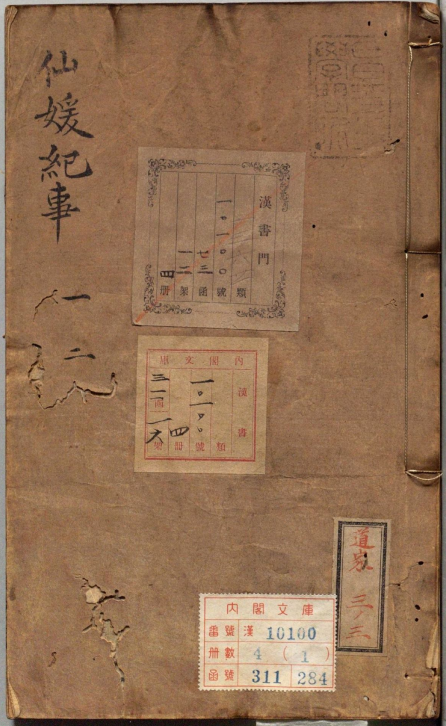 仙媛紀事
一
二
漢書門
類
一〇一〇〇
號
七三
函
一二
架
四
册
內閣文庫
漢書
類
一〇一〇〇
號
四
册
三一一
函
一六
架
道家
三ノ三
内閣文庫
番號 漢 10100
册數 4 (1)
函號 311 284